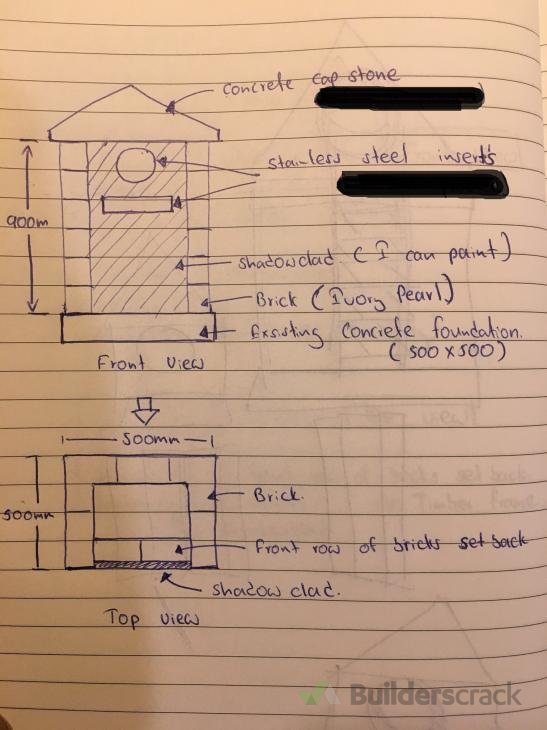 Concrete cap stone
stainless steel inserts
900m
shadowclad. (I can paint)
Brick (Ivory Pearl)
Exsisting Concrete foundation.
(500 x 500)
Front View
500mm
500mm
Brick.
Front row of bricks set back
shadow clad.
Top View
Builderscrack